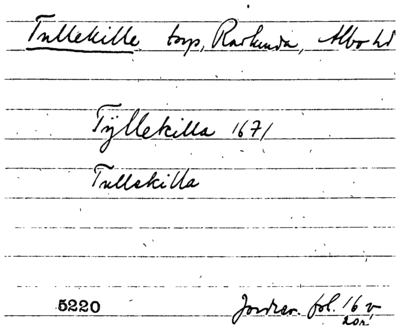 Tullekille torp, Rörum sn, Albo hd
Tÿllekilla 1671
Tullekilla
5220 Jordrev. fol. 16 v